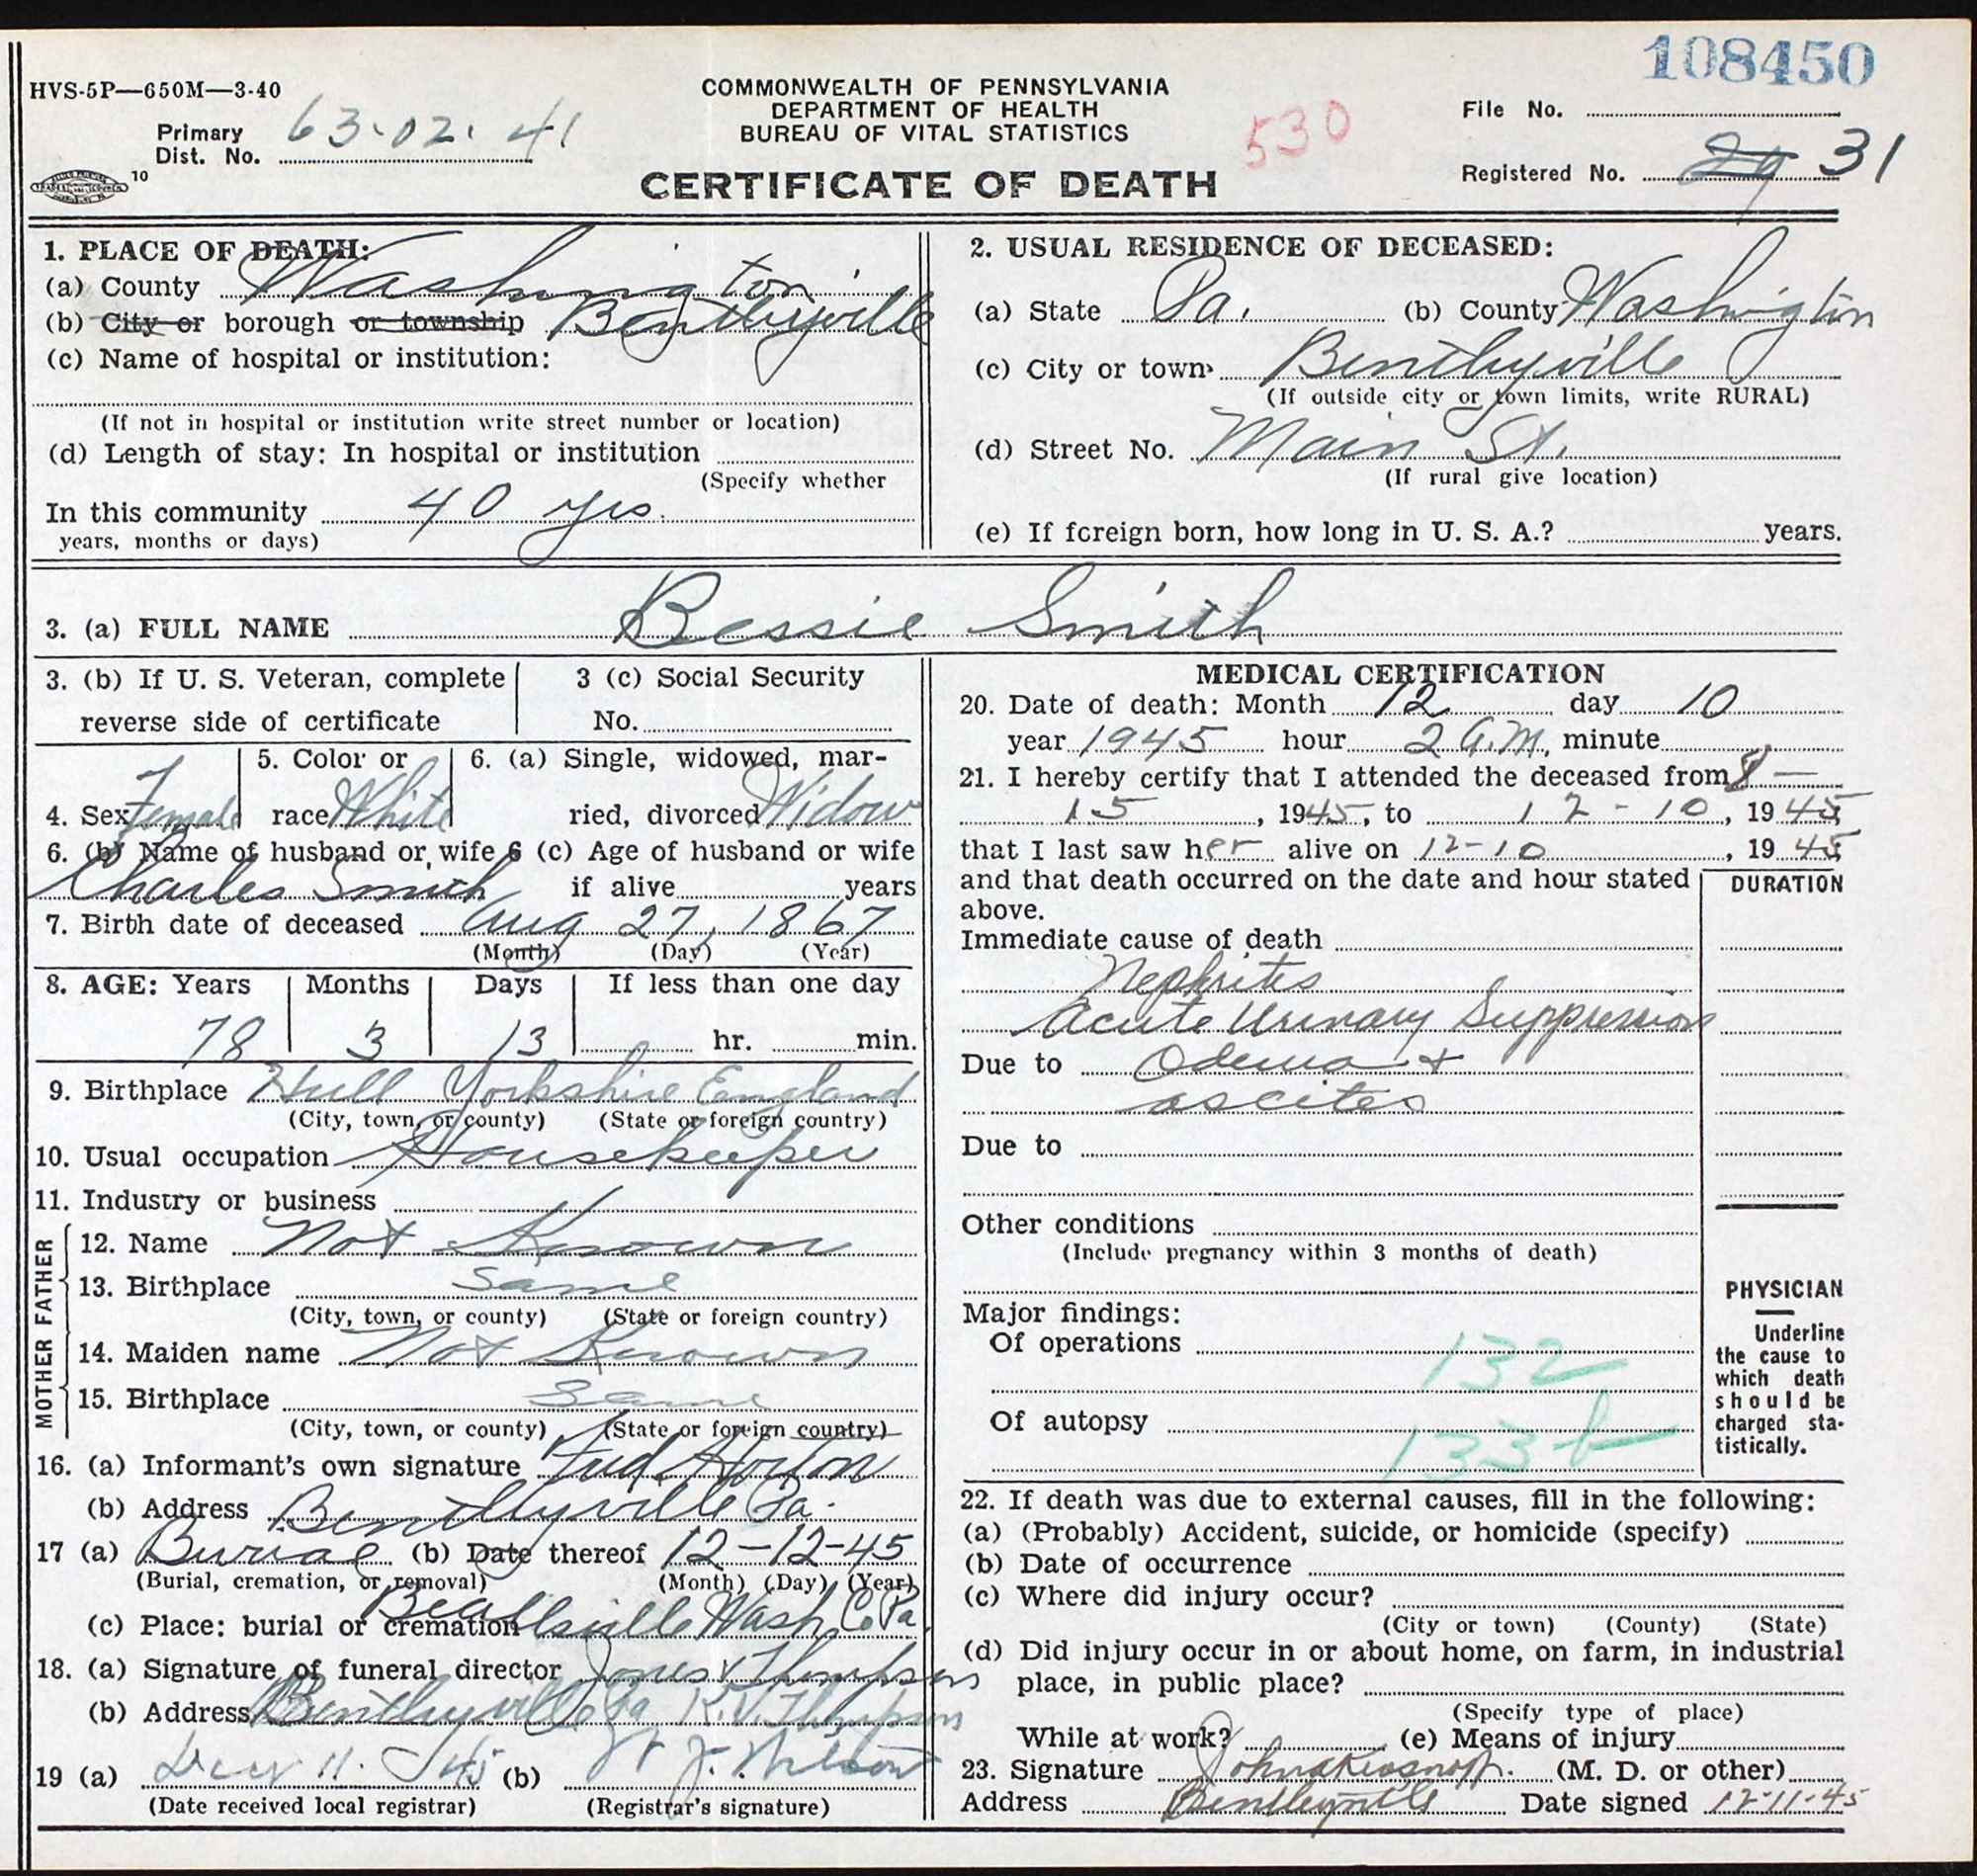 108450
HVS-5P—650M—3-40
COMMONWEALTH OF PENNSYLVANIA
DEPARTMENT OF HEALTH
BUREAU OF VITAL STATISTICS
530
File No.
Primary Dist. No. 63-02-41
Registered No. 29 31
10
CERTIFICATE OF DEATH
1. PLACE OF DEATH:
(a) County Washington
(b) City or borough or township Bentleyville
(c) Name of hospital or institution:
(If not in hospital or institution write street number or location)
(d) Length of stay: In hospital or institution
(Specify whether
In this community 40 yrs.
years, months or days)
2. USUAL RESIDENCE OF DECEASED:
(a) State Pa. (b) County Washington
(c) City or town Bentleyville
(If outside city or town limits, write RURAL)
(d) Street No. Main St.
(If rural give location)
(e) If foreign born, how long in U. S. A.? years.
3. (a) FULL NAME Bessie Smith
3. (b) If U. S. Veteran, complete
reverse side of certificate
3 (c) Social Security
No.
4. Sex Female
5. Color or
race White
6. (a) Single, widowed, mar-
ried, divorced Widow
6. (b) Name of husband or wife
Charles Smith
6 (c) Age of husband or wife
if alive years
7. Birth date of deceased Aug 27, 1867
(Month) (Day) (Year)
8. AGE: Years Months Days If less than one day
78 3 13 hr. min.
9. Birthplace Hull Yorkshire England
(City, town, or county) (State or foreign country)
10. Usual occupation Housekeeper
11. Industry or business
FATHER
12. Name Not Known
13. Birthplace Same
(City, town, or county) (State or foreign country)
MOTHER
14. Maiden name Not Known
15. Birthplace Same
(City, town, or county) (State or foreign country)
16. (a) Informant's own signature Fred Horton
(b) Address Bentleyville Pa.
17 (a) Burial (b) Date thereof 12-12-45
(Burial, cremation, or removal) (Month) (Day) (Year)
(c) Place: burial or cremation Beallsville Wash. Co Pa.
18. (a) Signature of funeral director Jones & Thompson
(b) Address Bentleyville Pa R.V. Thompson
19 (a) Dec 11. 1945 (b)
(Date received local registrar) (Registrar's signature)
MEDICAL CERTIFICATION
20. Date of death: Month 12 day 10
year 1945 hour 2 A.M. minute
21. I hereby certify that I attended the deceased from 8 —
15, 1945, to 12-10, 1945,
that I last saw her alive on 12-10, 1945,
and that death occurred on the date and hour stated
above.
DURATION
Immediate cause of death
Nephrites
Acute Urinary Suppression
Due to Odema +
ascites
Due to
Other conditions
(Include pregnancy within 3 months of death)
Major findings:
Of operations
132
Of autopsy
133b
PHYSICIAN
Underline
the cause to
which death
should be
charged sta-
tistically.
22. If death was due to external causes, fill in the following:
(a) (Probably) Accident, suicide, or homicide (specify)
(b) Date of occurrence
(c) Where did injury occur?
(City or town) (County) (State)
(d) Did injury occur in or about home, on farm, in industrial
place, in public place?
(Specify type of place)
While at work? (e) Means of injury
23. Signature (M. D. or other)
Address Bentleyville Date signed 12-11-45